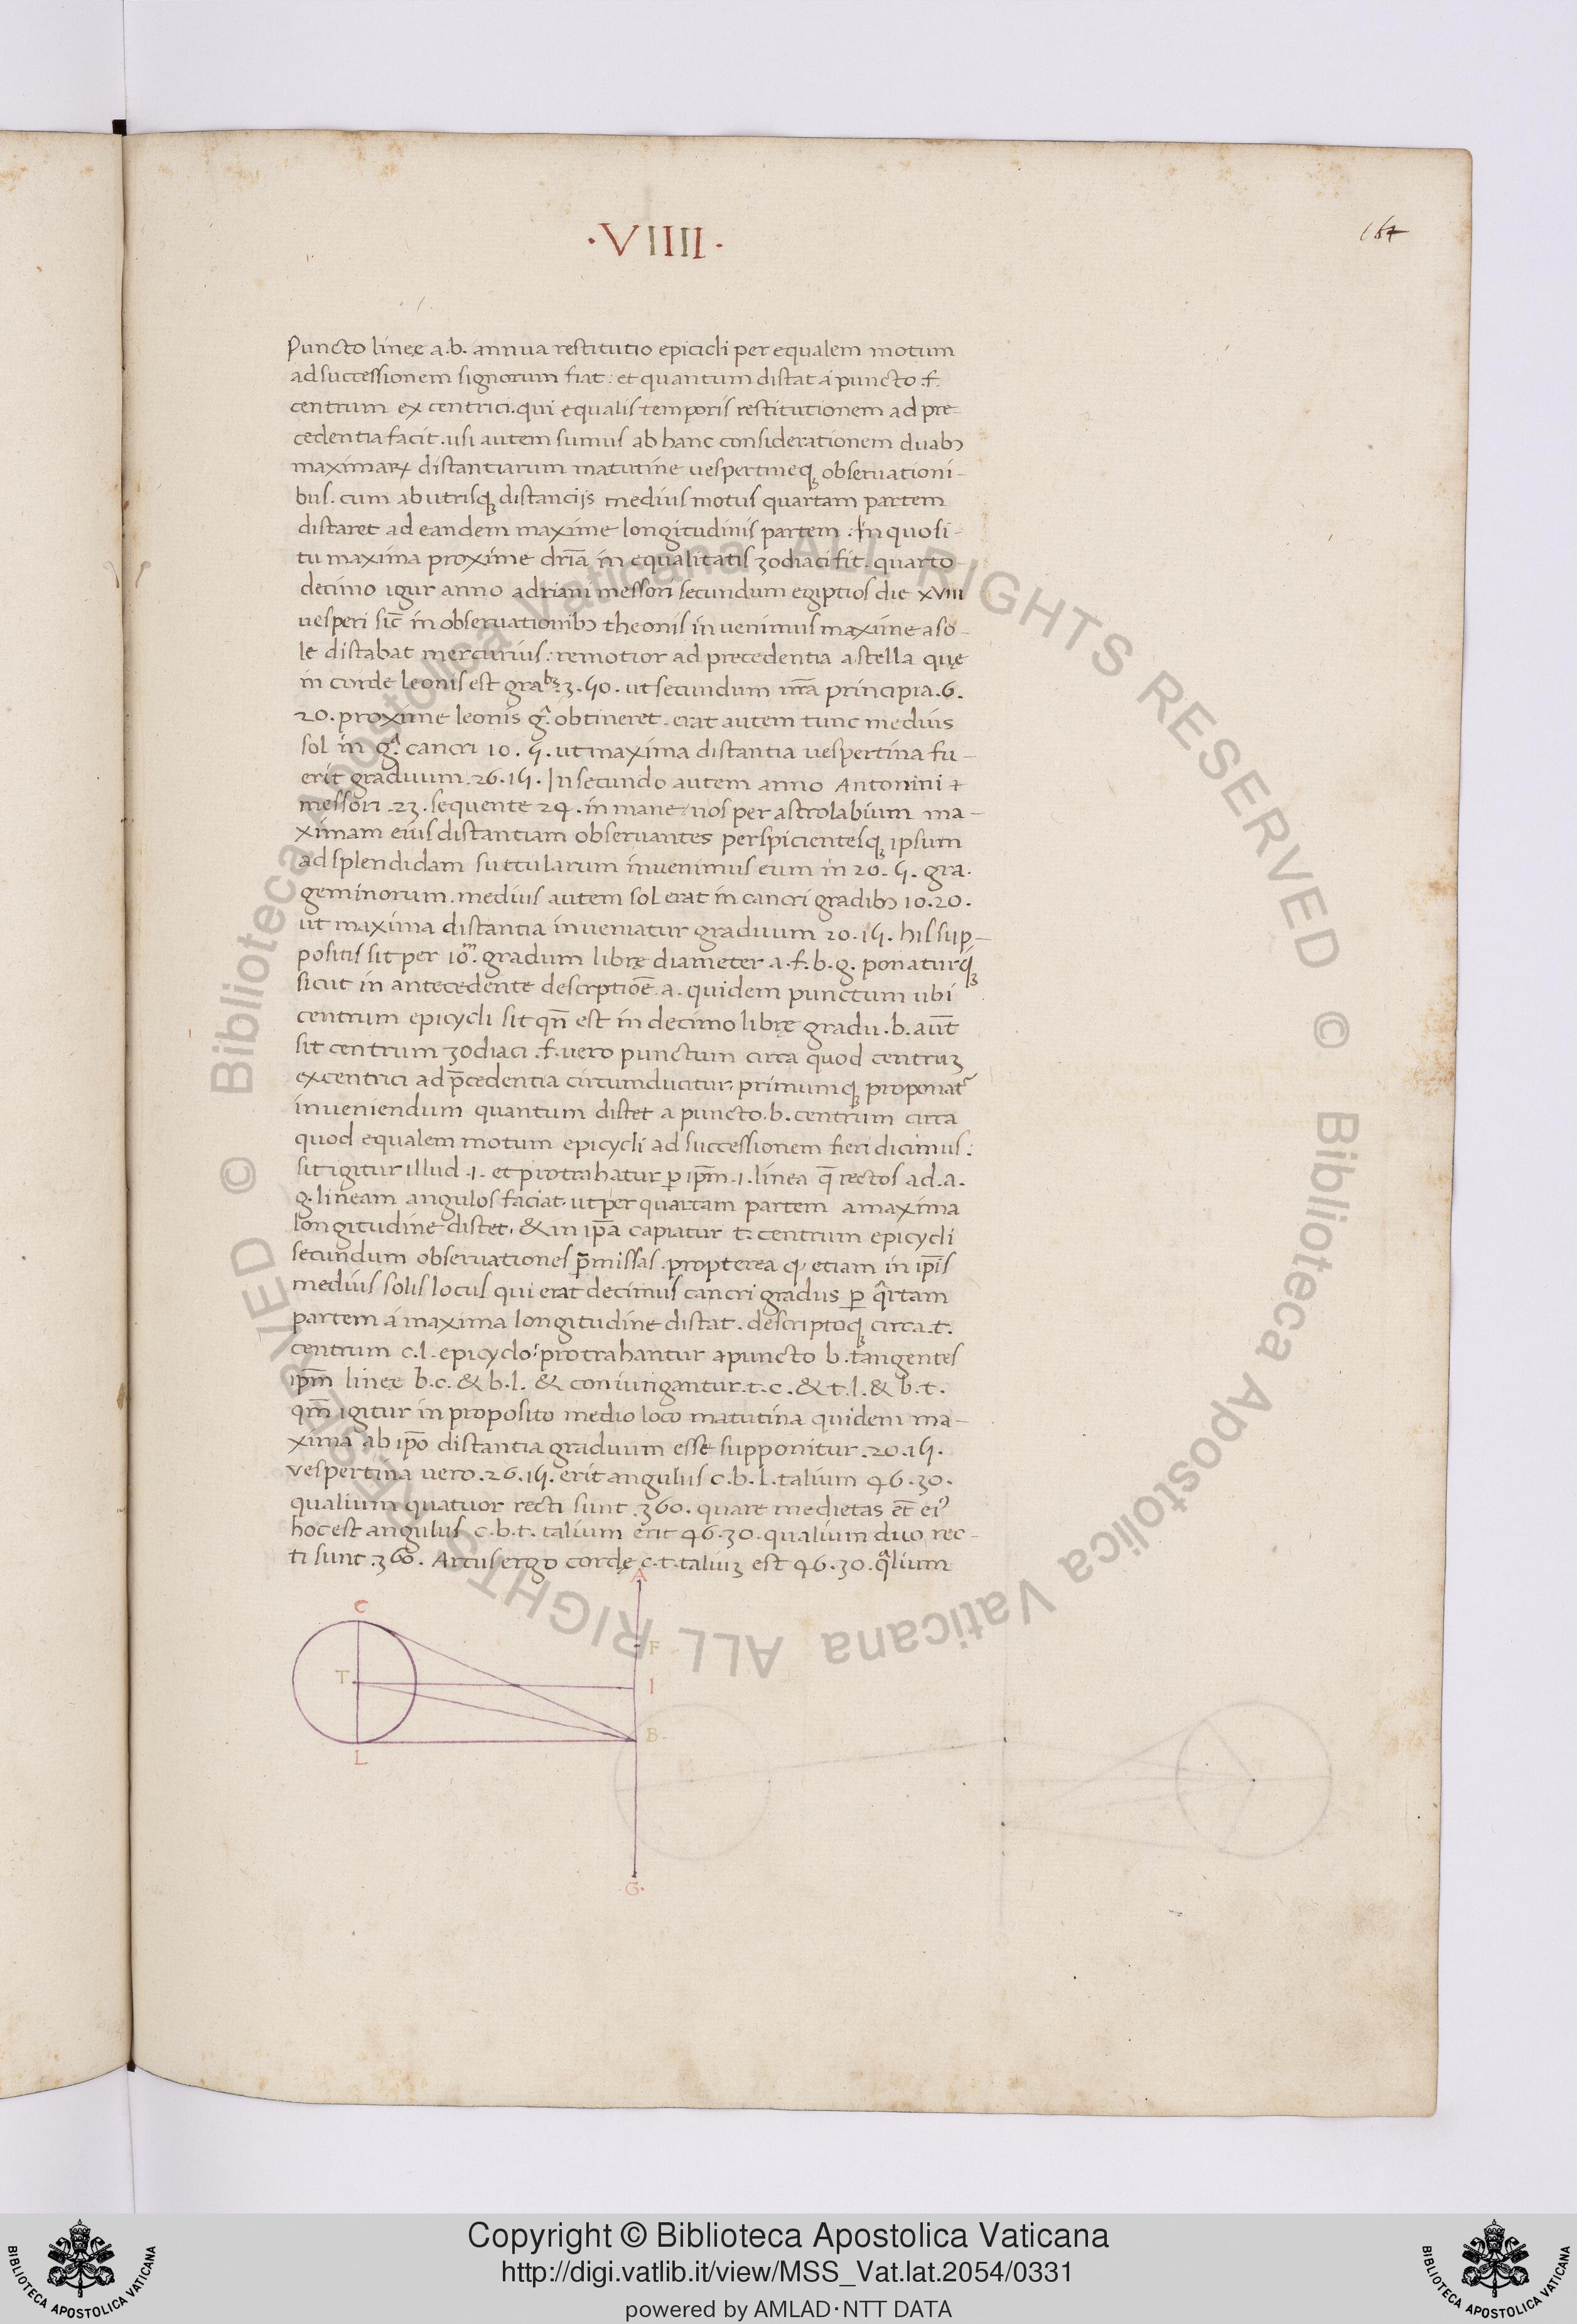 ·VIIII·
167
Puncto lineę a.b. annua restitutio epicicli per equalem motum
ad successionem signorum fiat: et quantum distat a puncto .f.
centrum excentrici. qui equalis temporis restitutionem ad pre-
cedentia facit. usi autem sumus ab hanc considerationem duabꝯ
maximaꝝ distantiarum matutine uespertineqꝫ obseruationi-
bus. cum ab utrisqꝫ distancijs medius motus quartam partem
distaret ad eandem maxime longitudinis partem. In quo si-
tu maxima proxime dr̄ia in equalitatis zodiaci fit. quarto-
decimo igur anno adriani messori secundum egiptios die XVIII
uesperi sic̄ in obseruationibꝯ theonis inuenimus maxime a so-
le distabat mercurius: remotior ad precedentia a stella quę
in corde leonis est graᵇꝫ 3. 50. ut secundum nr̄a principia .6.
20. proxime leonis gͣ. obtineret. erat autem tunc medius
sol in gͣ. cancri 10. 5. ut maxima distantia uespertina fu-
erit graduum .26.15. In secundo autem anno Antonini
messori .23. sequente 24. in mane nos per astrolabium ma-
ximam eius distantiam obseruantes perspicientesqꝫ ipsum
ad splendidam suttularum inuenimus eum in 20. 5. gra.
geminorum. medius autem sol erat in cancri gradibꝯ 10.20.
ut maxima distantia inueniatur graduum 20.15. his sup-
positis sit per 10ᵐ. gradum librę diameter .a.f.b.g. ponaturqꝫ
sicut in antecedente descrptiōe. a. quidem punctum ubi
centrum epicycli sit qn̄ est in decimo librę gradu. b. aut̄
sit centrum zodiaci .f. uero punctum circa quod centruꝫ
excentrici ad p̄cedentia circumducitur. primumqꝫ proponat᷑
inueniendum quantum distet a puncto. b. centrum circa
quod equalem motum epicycli ad successionem fieri dicimus:
sit igitur illud .i. et protrahatur ꝑ ip̄m .i. linea q̄ rectos ad .a.
g. lineam angulos faciat. ut per quartam partem a maxima
longitudine distet. & in ip̄a capiatur t. centrum epicycli
secundum obseruationes p̄missas. propterea ꝙ etiam in ip̄is
medius solis locus qui erat decimus cancri gradus ꝑ qͣrtam
partem a maxima longitudine distat. descriptoqꝫ circa .t.
centrum c.l. epicyclo: protrahantur a puncto b. tangentes
ip̄m lineę b.c. & b.l. & coniungantur .t.c. & t.l. & b.t.
qm̄ igitur in proposito medio loco matutina quidem ma-
xima ab ip̄o distantia graduum esse supponitur .20.15.
vespertina uero .26.15. erit angulus c.b.l. talium 46.30.
qualium quatuor recti sunt .360. quare medietas et̄ eiꝰ
hoc est angulus c.b.t. talium erit 46.30. qualium duo rec-
ti sunt .360. Arcus ergo cordę c.t. taliuꝫ est 46.30. qͣlium
A
C
F
T
I
B.
L
G.
© Biblioteca Apostolica Vaticana ALL RIGHTS RESERVED
© Biblioteca Apostolica Vaticana ALL RIGHTS RESERVED
Copyright © Biblioteca Apostolica Vaticana
http://digi.vatlib.it/view/MSS_Vat.lat.2054/0331
powered by AMLAD·NTT DATA
BIBLIOTECA APOSTOLICA VATICANA
BIBLIOTECA APOSTOLICA VATICANA